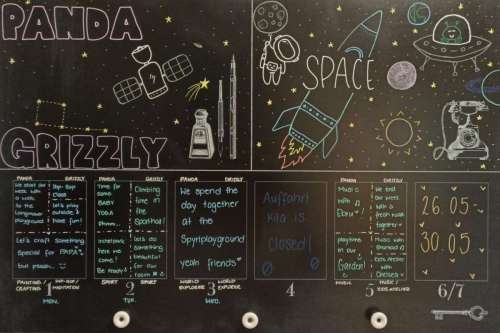 PANDA
GRIZZLY
SPACE
PANDA GRIZZLY
We start our
week with
a walk
to the
playground
Hip-Hop
Class
Let's play
outside &
have fun!
Let's craft something
Special for PAPA
but psssh...
PAINTING/
CRAFTING
HIP-HOP/
MEDITATION
1
MON.
PANDA GRIZZLY
Time for
some
BABY
YOGA
Ohmm...
Climbing
time in
the
Sporthal!
here we
come!
Be ready!
let's do
something
beautiful
for our
room
SPORT SPORT
2
TUE.
PANDA GRIZZLY
We spend the
day together
at the
Spyriplayground
yeah friends
WORLD
EXPLORER
WORLD
EXPLORER
3
WED.
Auffahrt
Kita is
Closed!
4
PANDA GRIZZLY
Music
with
Ebru
We end
our week
with a
fresh walk
together
playtime
in our
Garden!
Music with
Kids Atelier
with
Chelsea
MUSIC/
KIDS ATELIER
5
26.05
30.05
6/7